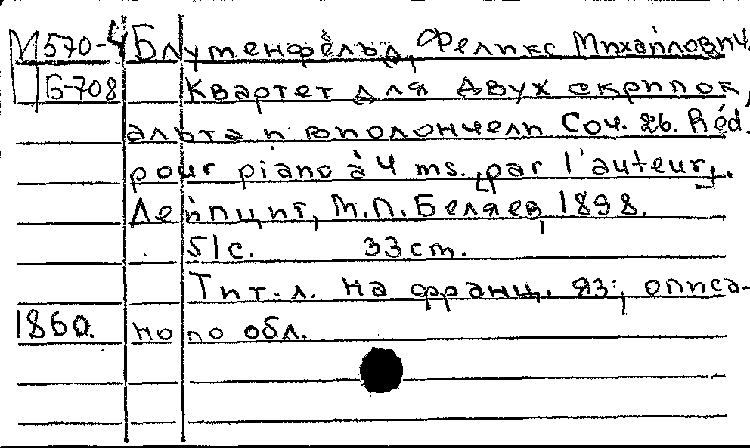 М570-4 Блуменфельд, Феликс Михайлович.
Б-708 Квартет для двух скрипок,
альта и виолончели Соч. 26. Réd.
pour piano à 4 ms. [par l'auteur].
Лейпциг, М.П.Беляев, 1898.
51с. 33cm.
Тит.л. на франц. яз., описа-
1860. но по обл.